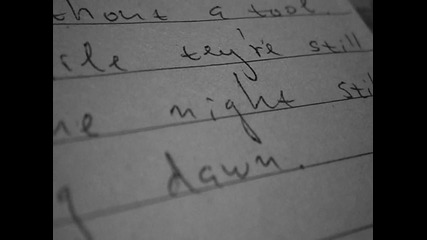 thout a tool
le they're still
ne night stil
g dawn.